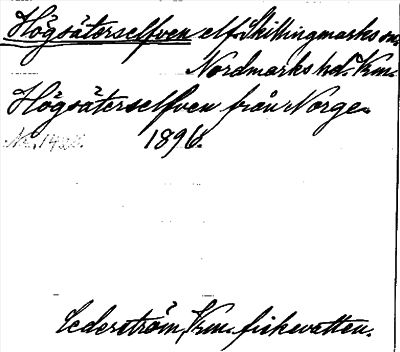 Högsäterselfven elf Skillingmarks sn.
Nordmarks hd. Krm.
Högsäterselfven från Norge.
1896.
Cederström, Krm. fiskevatten.